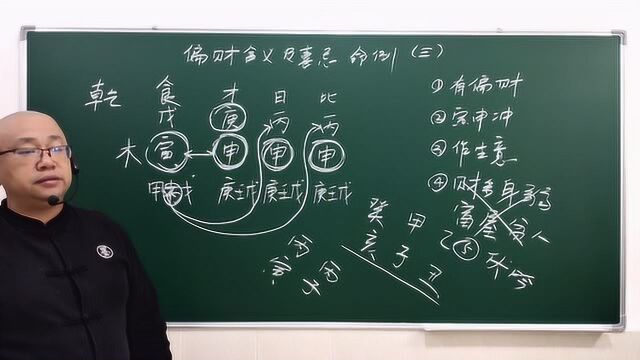 偏财含义及喜忌 命例（三）
乾 食 才 日 比
戊 庚 丙 丙
木 寅 申 申 申
甲丙戊 庚壬戊 庚壬戊 庚壬戊
①有偏财
②寅申冲
③作生意
④财多身弱
富屋贫人
⑤
癸 甲
亥 子 丑
丙 丙
寅 子